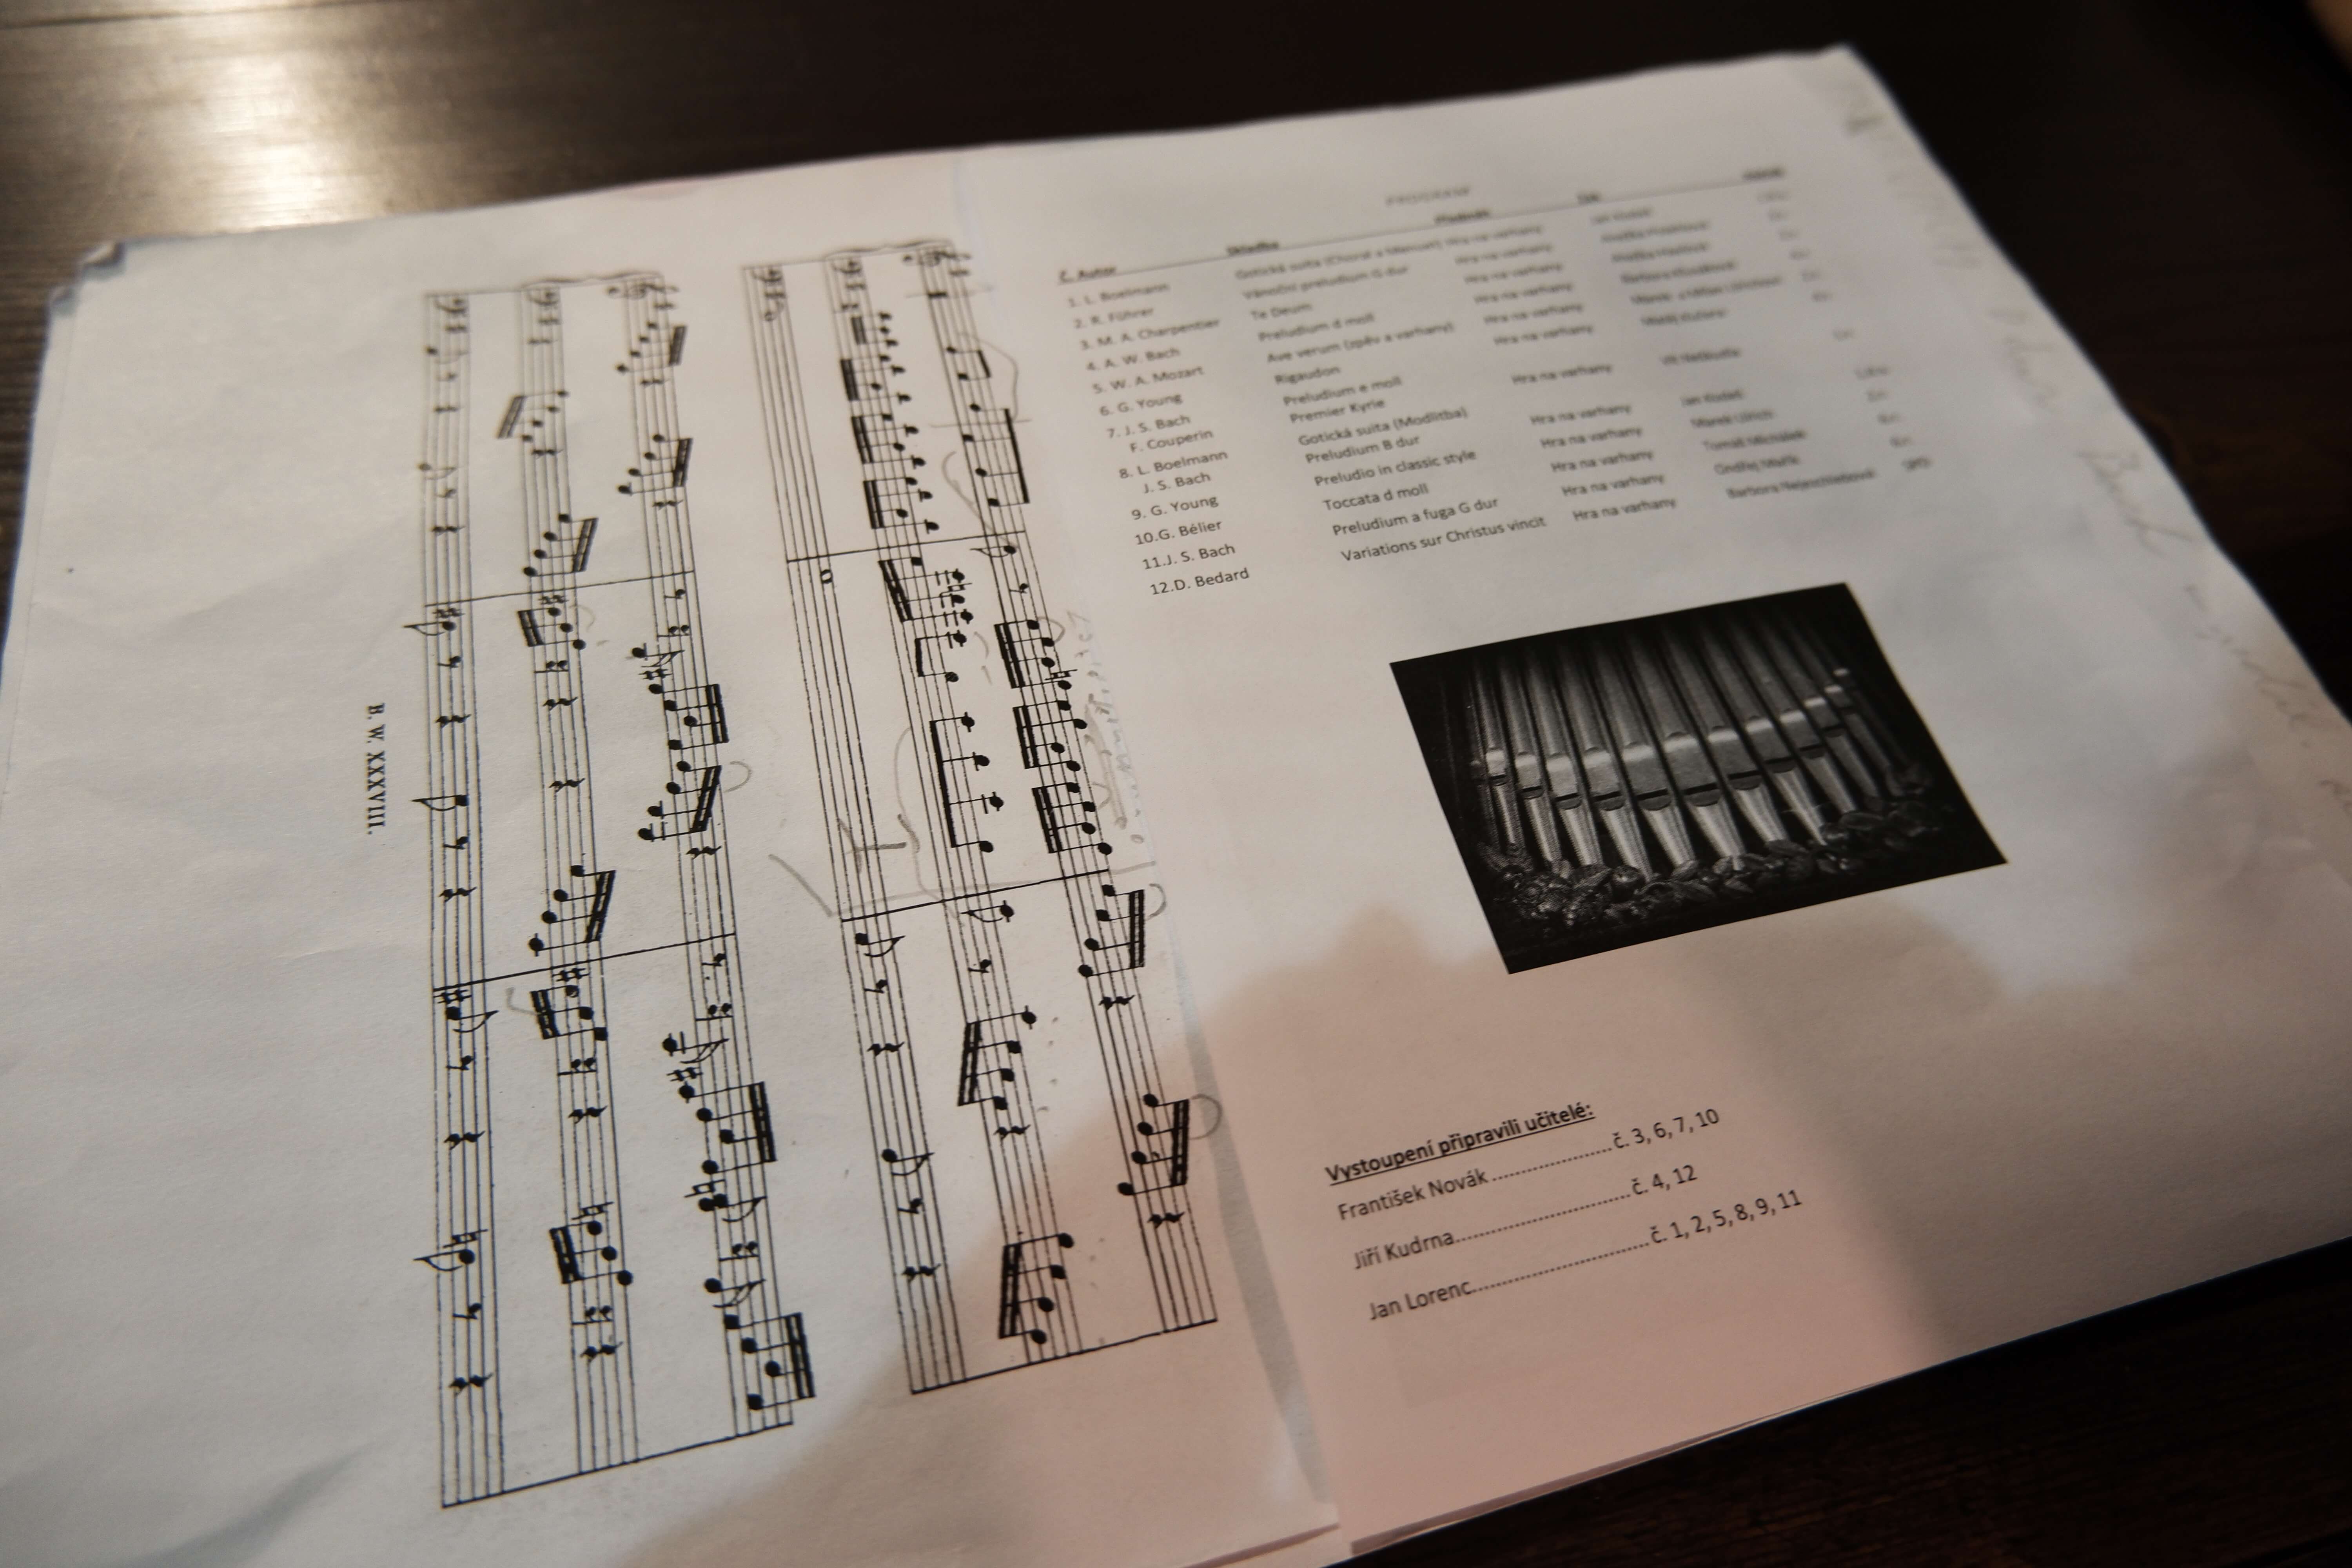 B. W. XXXVIII.
PROGRAM
Č. Autor Skladba Předmět
1. L. Boelmann Gotická suita (Choral a Menuet) Hra na varhany Jan Kodeš
2. R. Führer Vánoční preludium G dur Hra na varhany
3. M. A. Charpentier Te Deum Hra na varhany
4. A. W. Bach Preludium d moll Hra na varhany Barbora
5. W. A. Mozart Ave verum (zpěv a varhany) Hra na varhany
6. G. Young Rigaudon Hra na varhany
7. J. S. Bach Preludium e moll Hra na varhany Vít
F. Couperin Premier Kyrie
8. L. Boelmann Gotická suita (Modlitba) Hra na varhany Jan Kodeš
J. S. Bach Preludium B dur
9. G. Young Preludio in classic style Hra na varhany Marek Ullrich
10.G. Bélier Toccata d moll Hra na varhany Tomáš Michálek
11.J. S. Bach Preludium a fuga G dur Hra na varhany Ondřej Mařík
12.D. Bedard Variations sur Christus vincit Hra na varhany Barbora
Vystoupení připravili učitelé:
František Novák ....................č. 3, 6, 7, 10
Jiří Kudrna.............................č. 4, 12
Jan Lorenc.............................č. 1, 2, 5, 8, 9, 11